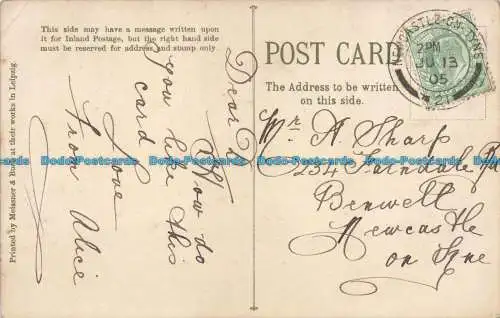 This side may have a message written upon
it for Inland Postage, but the right hand side
must be reserved for address and stamp only.
POST CARD
The Address to be written
on this side.
NEWCASTLE-ON-TYNE
2PM
JU 13
05
21
Printed by Meissner & Buch at their works in Leipzig
Dear
How do
you like this
card
Love
from Alice
Mr A Sharp
234 Farndale Rd
Benwell
Newcastle
on Tyne
Dodo-Postcards
Dodo-Postcards
Dodo-Postcards
Dodo-Postcards